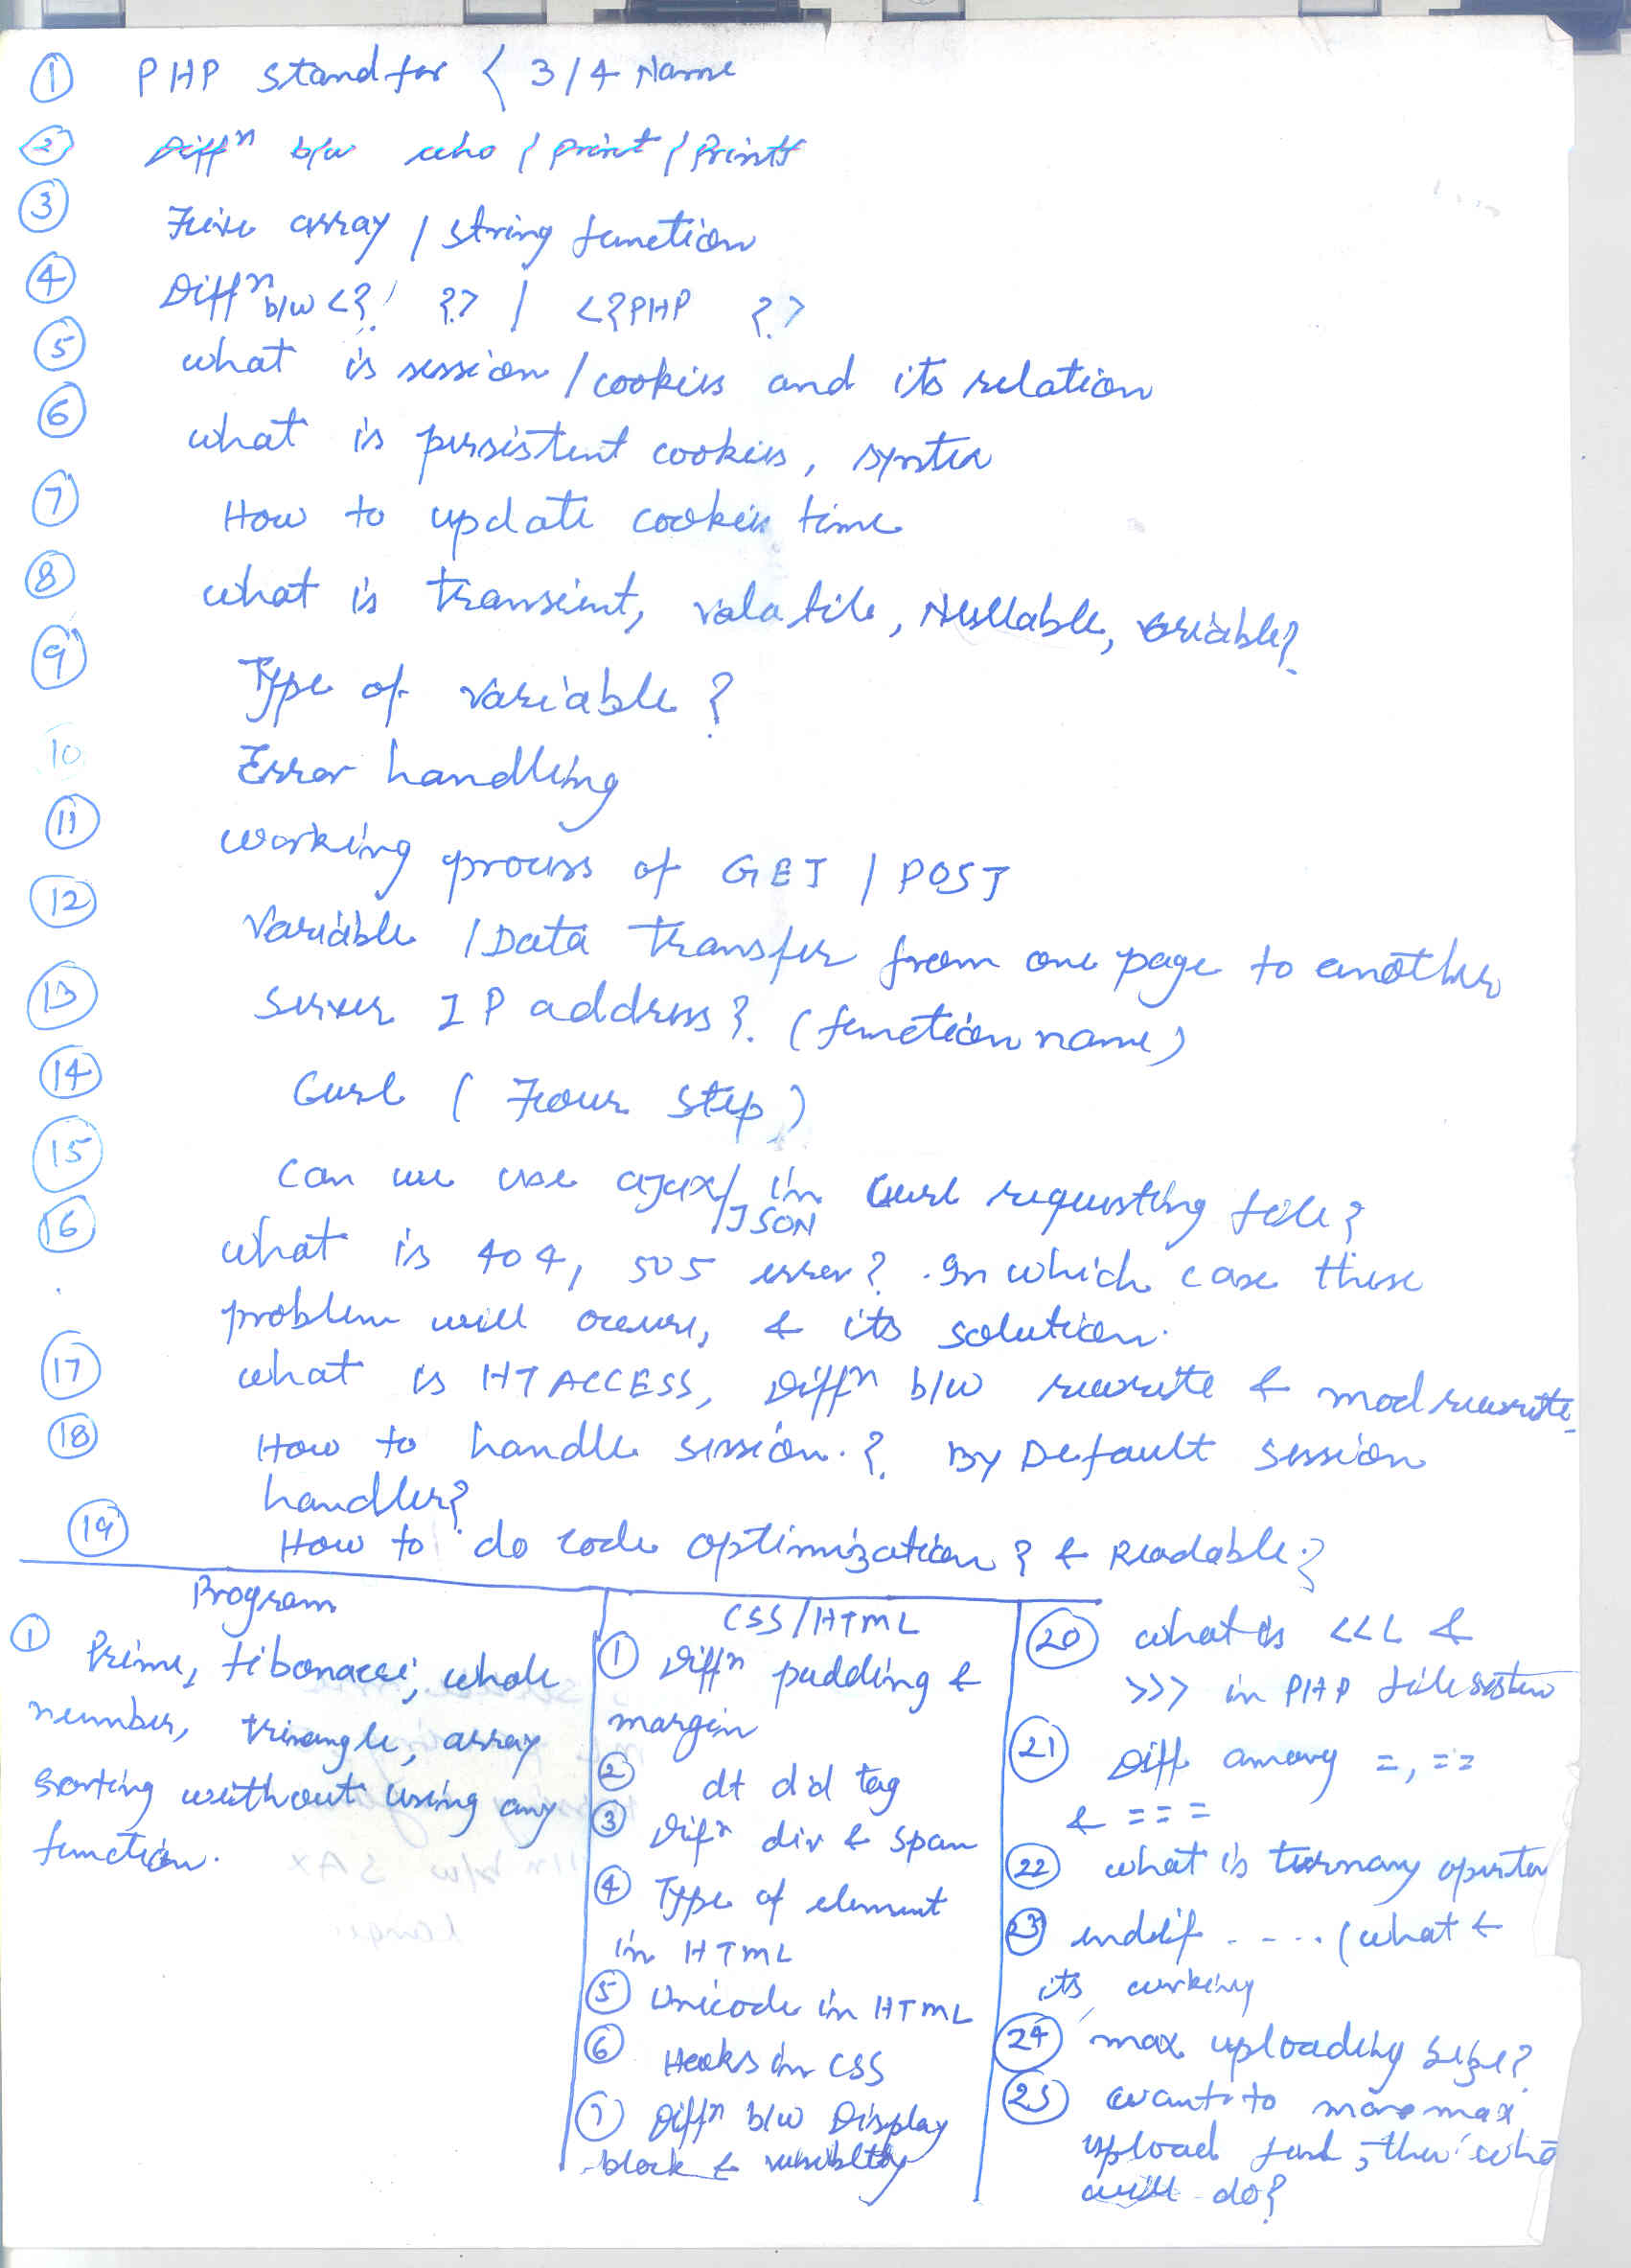 ① PHP stand for < 3/4 Name
② Diffⁿ b/w echo / print / Printf
③ Five array / string function
④ Diffⁿ b/w <? ?> / <?PHP ?>
⑤ what is session / cookies and its relation
⑥ what is persistent cookies, syntax
⑦ How to update cookies time
⑧ what is transient, volatile, Nullable, variable?
⑨ Type of variable?
10 Error handling
⑪ working process of GET / POST
⑫ Variable / Data transfer from one page to another
⑬ Server IP address? (function name)
⑭ Curl ( Four step )
⑮ Can we use ajax/JSON in Curl requesting file?
⑯ what is 404, 505 error? In which case these
problem will occurs, & its solution.
⑰ what is HTACCESS, Diffⁿ b/w rewrite & mod rewrite
⑱ How to handle session.? By Default session
handler?
⑲ How to do code optimization? & Readable?
Program
① Prime, fibonacci, whole
number, triangle, array
sorting without using any
function.
CSS/HTML
① Diffⁿ padding &
margin
② dt dd tag
③ Difⁿ div & span
④ Type of element
in HTML
⑤ Unicode in HTML
⑥ Hacks in CSS
⑦ Diffⁿ b/w Display
block & visiblity
⑳ what is <<< &
>>> in PHP file system
㉑ Diff among =, ==
& ===
㉒ what is ternary
㉓ endif ..... (what &
its working
㉔ max uploading size?
㉕ want to more max
upload
will do?